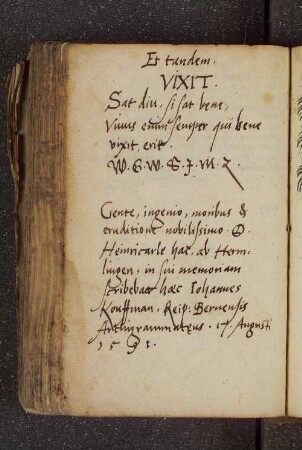 Et tandem.
VIXIT.
Sat diu, si sat bene,
Vivus enim semper qui bene
vixit, erit.
W. G. W. S. J. M. Z.
Gente, ingenio, moribus &
eruditione nobilissimo D.
Heinricatz hac, ab Herm-
lingen, in sui memoriam
scribebat haec Iohannes
Kouffman, Reip: Bernensis
Archigrammateus. 17. Augusti
1591.